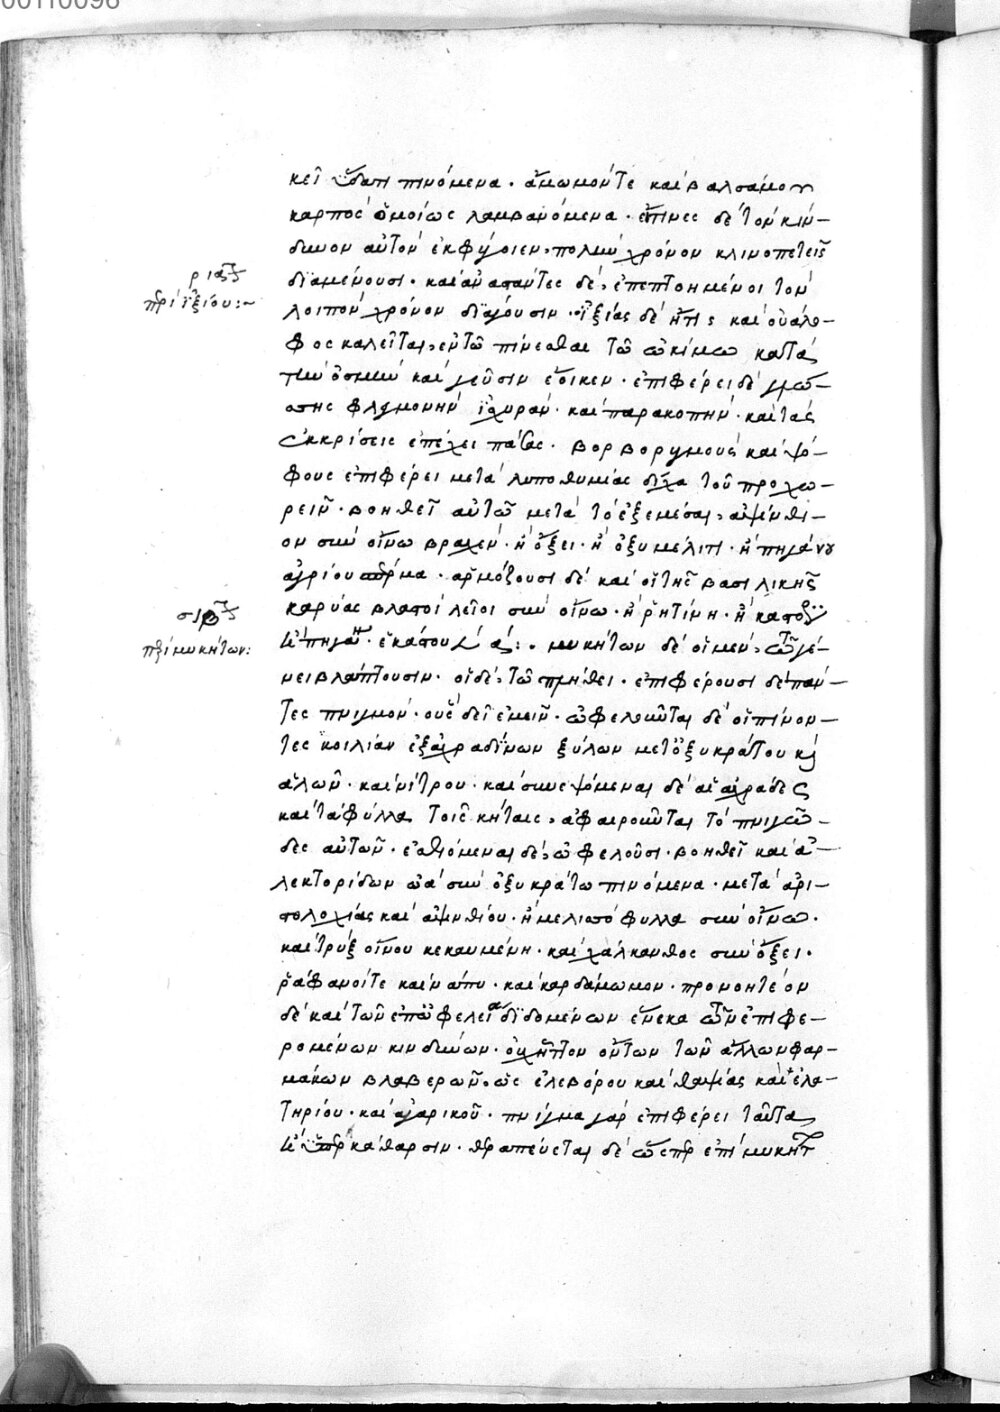 00110098
κεῖ ὕδατι πινόμενα · ἄμωμόν τε καὶ βαλσάμου
καρπὸς ὁμοίως λαμβανόμενα · εἴ τινες δὲ τὸν κίν–
δυνον αὐτὸν ἐκφύγοιεν, πολὺν χρόνον κλινοπετεῖς
διαμένουσι · καὶ ἀναστάντες δὲ, ἐπεπτοημένοι τὸν
περὶ ἰξίου :~
λοιπὸν χρόνον διάγουσιν · ἰξίας δὲ ἥτις καὶ οὐλο–
φος καλεῖται, ἐν τῶ πίνεσθαι τῶ ὠκίμω κατὰ
τὴν ὀσμὴν καὶ γεῦσιν ἔοικεν · ἐπιφέρει δὲ γλώ–
σσης φλεγμονὴν ἰσχυράν · καὶ παρακοπήν · καὶ τὰς
ἐκκρίσεις ἐπέχει πάσας · βορβορυγμούς καὶ ψό–
φους ἐπιφέρει μετὰ λιποθυμίας δίχα τοῦ προχω–
ρεῖν · βοηθεῖ αὐτῶ μετὰ τὸ ἐξεμέσαι, ἀψίνθι–
ον σὺν οἴνω βραχέν · ἢ ὄξει · ἢ ὀξυμέλιτι · ἢ πηγάνου
ἀγρίου σπέρμα · ἁρμόζουσι δὲ καὶ οἱ τῆς βασιλικῆς
καρύας βλαστοὶ λεῖοι σὺν οἴνω · ἢ ῥητίνη · ἢ
περὶ μυκήτων :
μυκήτων δὲ οἱ μὲν, τῶ γέ–
νει βλάπτουσιν · οἱ δὲ, τῶ πλήθει · ἐπιφέρουσι δὲ πάν–
τες πνιγμόν · οὓς δεῖ ἐμεῖν · ὠφελοῦνται δὲ οἱ πίνον–
τες κονίαν ἐξ ἀχραδίνων ξύλων μετ' ὀξυκράτου καὶ
ἁλῶν · καὶ νίτρου · καὶ συνεψόμεναι δὲ αἱ ἀχράδες
καὶ τὰ φύλλα τοῖς μύκησι, ἀφαιροῦνται τὸ πνιγῶ–
δες αὐτῶν · ἐσθιόμεναι δὲ, ὠφελοῦσι · βοηθεῖ καὶ ἀ–
λεκτορίδων ὠὰ σὺν ὀξυκράτω πινόμενα · μετὰ ἀρι–
στολοχίας καὶ ἀψινθίου · ἢ μελισσόφυλλα σὺν οἴνω ·
καὶ τρὺξ οἴνου κεκαυμένη · καὶ χάλκανθος σὺν ὄξει ·
ῥάφανοί τε καὶ νάπυ · καὶ κάρδαμον · προνοητέον
δὲ καὶ τῶν ἐπ' ὠφελεία διδομένων ἕνεκα τῶν ἐπιφε–
ρομένων κινδύνων · οὐχ ἧττον ὄντων τῶν ἄλλων φαρ–
μάκων βλαβερῶν, ὡς ἐλεβόρου καὶ θαψίας καὶ ἐλα–
τηρίου · καὶ ἀγαρικοῦ · πνίγμα γὰρ ἐπιφέρει ταῦτα
ἢ ὑπὲρ κάθαρσιν · θεραπεύεται δὲ ὥσπερ ἐπὶ μυκήτων